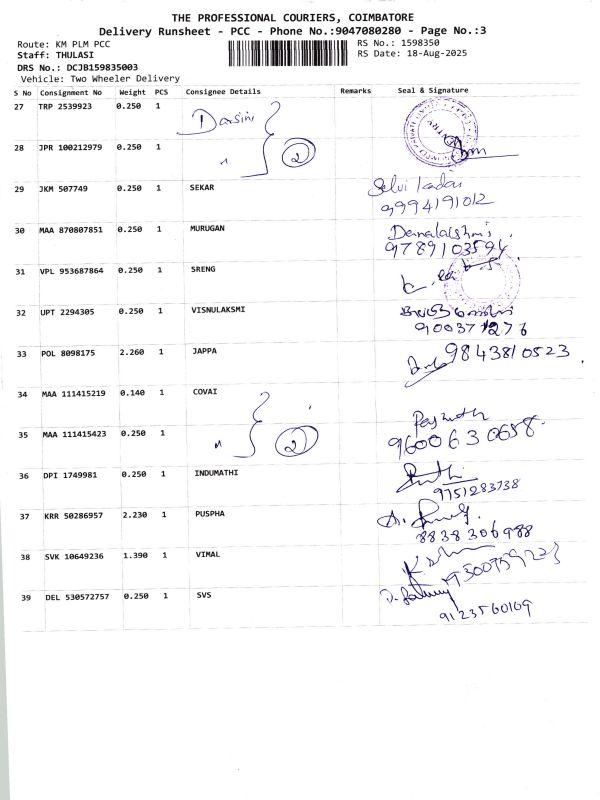 THE PROFESSIONAL COURIERS, COIMBATORE
Delivery Runsheet - PCC - Phone No.:9047080280 - Page No.:3
Route: KM PLM PCC
RS No.: 1598350
Staff: THULASI
RS Date: 18-Aug-2025
DRS No.: DCJB159835003
Vehicle: Two Wheeler Delivery
S No Consignment No Weight PCS Consignee Details Remarks Seal & Signature
27 TRP 2539923 0.250 1 Darsini
28 JPR 100212979 0.250 1 " 2
29 JKM 507749 0.250 1 SEKAR Selvi
9994191012
30 MAA 870807851 0.250 1 MURUGAN Danalakshmi
9789103594
31 VPL 953687864 0.250 1 SRENG
32 UPT 2294305 0.250 1 VISNULAKSMI
33 POL 8098175 2.260 1 JAPPA 9843810523
34 MAA 111415219 0.140 1 COVAI
35 MAA 111415423 0.250 1 " 2 9600630658
36 DPI 1749981 0.250 1 INDUMATHI
9751283738
37 KRR 50286957 2.230 1 PUSPHA
8838306988
38 SVK 10649236 1.390 1 VIMAL
39 DEL 530572757 0.250 1 SVS
9123560169